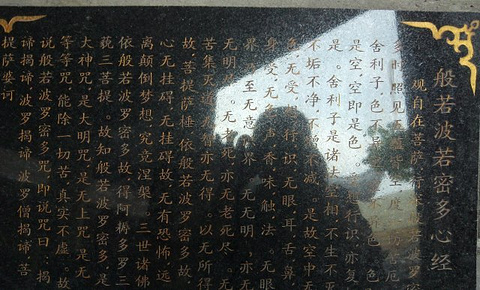 般若波若密多心经
观自在菩萨,行深般若波罗密
多时照见五蕴皆空度一切苦厄
舍利子色不异空色
是空,空即是色行识亦复
是。舍利子是诸法空相,不生不灭
不垢不净不增不减。是故空中无
色无受想行识,无眼,耳,舌,鼻,
身受,无色声,香,味,触,法。无眼
界,至无意识界,无无明,亦无
无明尽。无老死亦无老死尽。无
苦集灭道,无智亦无得。以无所得
故。菩提萨埵依般若波罗密多故,
心无挂碍,无挂碍故,无有恐怖远
离颠倒梦想,究竟涅槃。三世诸佛
依般若波罗密多故,得阿耨多罗三
藐三菩提。故知般若波罗密多是
大神咒,是大明咒,是无上咒,是无
等等咒,能除一切苦,真实不虚。故
说般若波罗密多咒,即说咒曰,揭
谛揭谛,波罗揭谛,波罗僧揭谛,菩
提萨婆诃